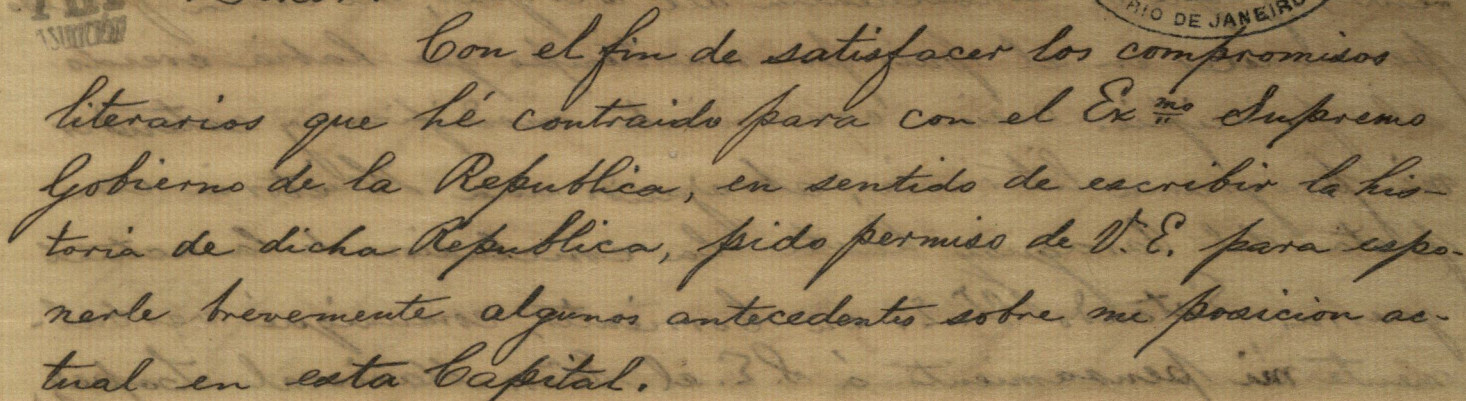 RIO DE JANEIRO
Con el fin de satisfacer los compromisos
literarios que hé contraido para con el Exmo Supremo
Gobierno de la Republica, en sentido de escribir la his-
toria de dicha Republica, pido permiso de V. E. para espo-
nerle brevemente algunos antecedentes sobre mi posicion ac-
tual en esta Capital.